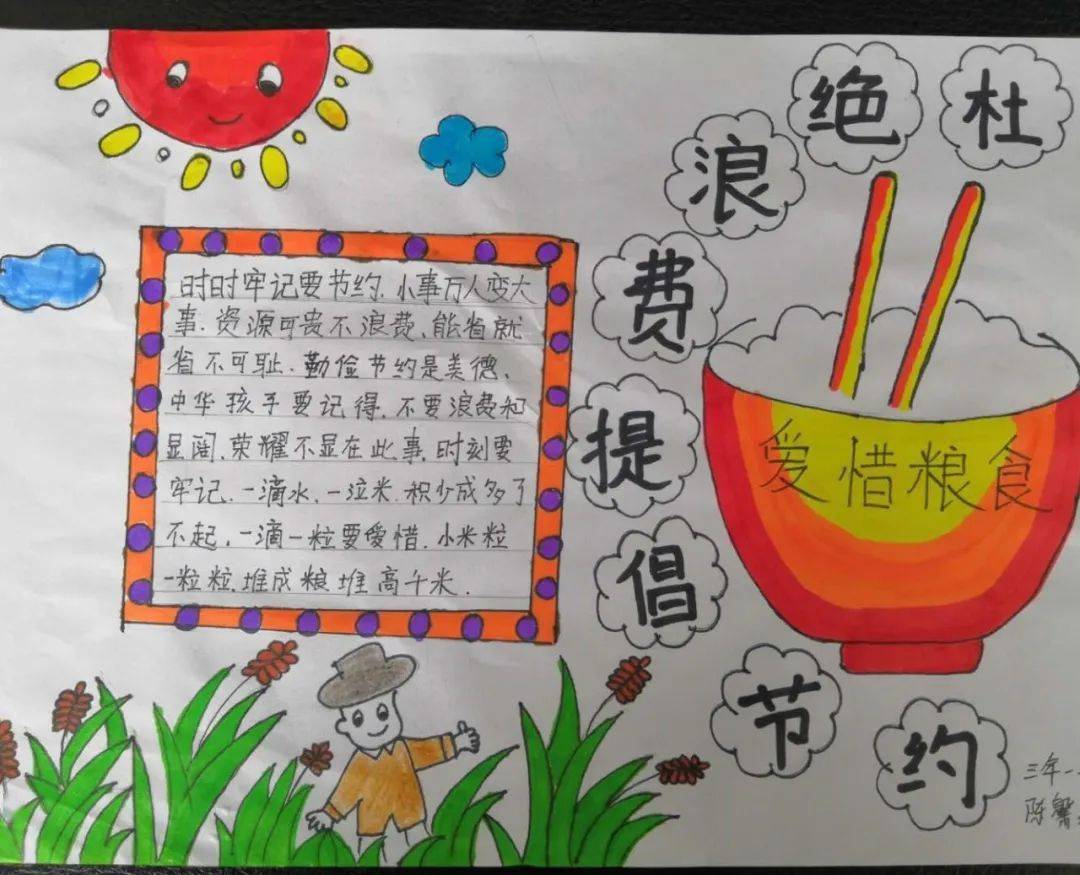 杜绝浪费提倡节约
爱惜粮食
时时牢记要节约.小事万人变大
事.资源可贵不浪费、能省就
省不可耻.勤俭节约是美德、
中华孩子要记得.不要浪费和
显阔.荣耀不显在此事.时刻要
牢记.一滴水.一泣米.积少成多了
不起.一滴一粒要爱惜.小米粒
一粒粒.堆成粮堆高千米.
三年一
陈馨